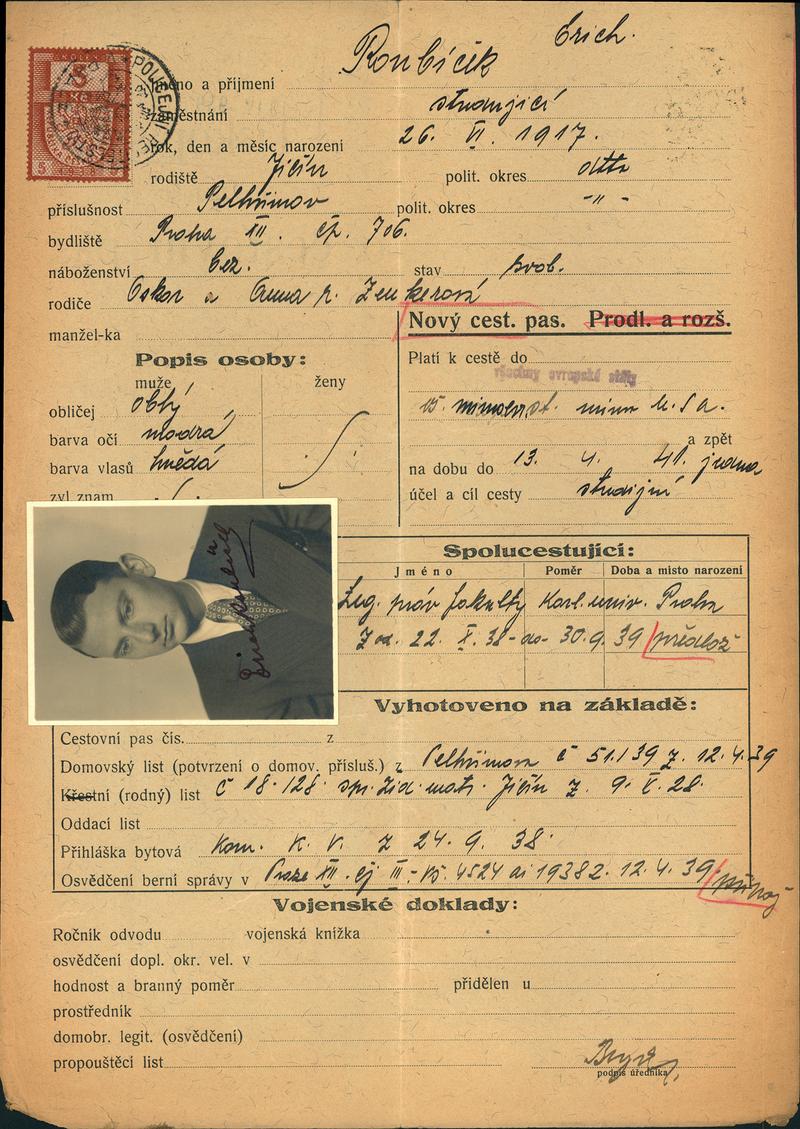 Roubíček Erich.
jméno a příjmení
zaměstnání studující
rok, den a měsíc narození 26. VI. 1917.
rodiště Jičín polit. okres dtto
příslušnost Pelhřimov polit. okres -"-
bydliště Praha XII. čp. 706.
náboženství bez. stav svob.
rodiče Oskar a Anna r. Zenkerová
manžel-ka
Nový cest. pas. Prodl. a rozš.
Popis osoby:
muže ženy
obličej oblý
barva očí modrá
barva vlasů hnědá
zvl. znam.
Platí k cestě do
všechny evropské státy
mimo U.S.A.
a zpět
na dobu do 13. 4. 41.
účel a cíl cesty studijní
Erich Roubíček
Spolucestující:
Jméno Poměr Doba a místo narození
Leg. práv. fakulty Karl. univ. Praha
Z od 22. X. 38 - do - 30. 9. 39
Vyhotoveno na základě:
Cestovní pas čís. z
Domovský list (potvrzení o domov. přísluš.) z Pelhřimova č 51/39 z 12.4.39
Křestní (rodný) list č 18/128 žid. mat. Jičín z 9. V. 28.
Oddací list
Přihláška bytová kom. K. V. z 24. 9. 38.
Osvědčení berní správy v Praze XII. 12. 4. 39
Vojenské doklady:
Ročník odvodu vojenská knížka
osvědčení dopl. okr. vel. v
hodnost a branný poměr přidělen u
prostředník
domobr. legit. (osvědčení)
propouštěcí list
podpis úředníka